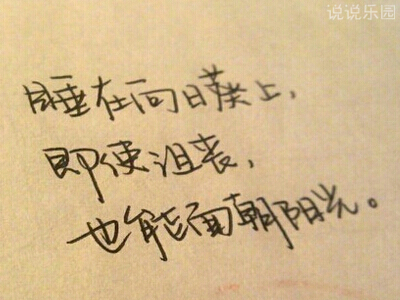 说说乐园
睡在向日葵上，
即使沮丧，
也能面朝阳光。